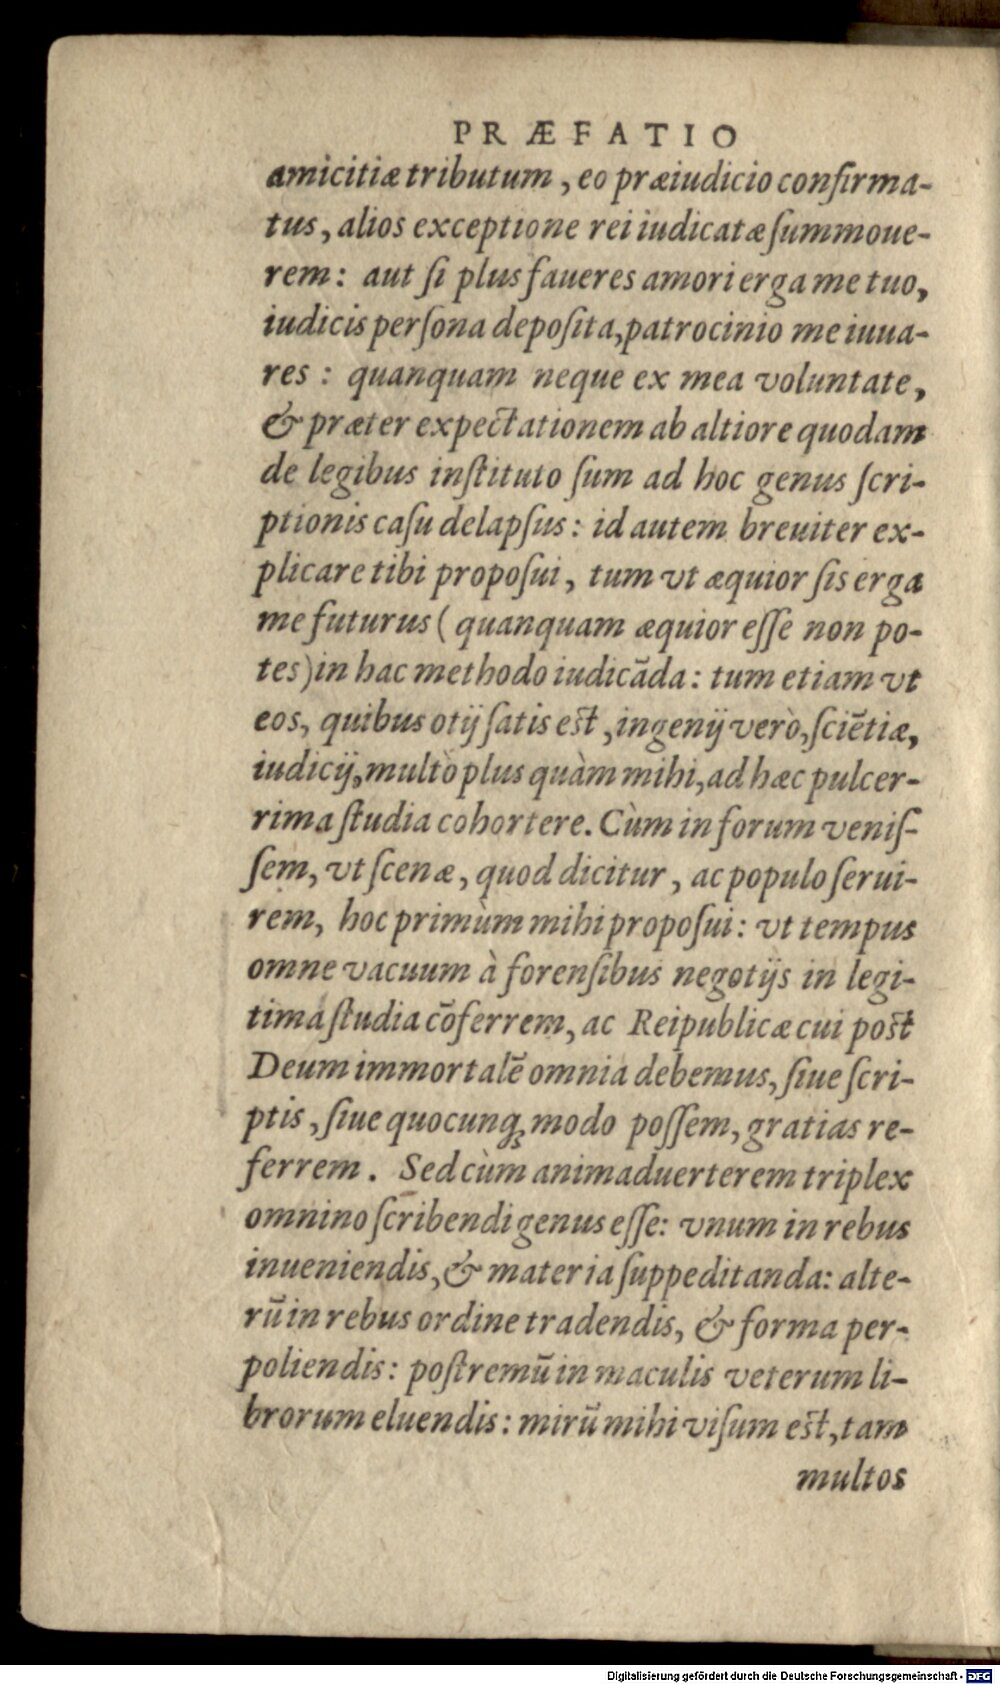 PRÆFATIO
amicitiæ tributum, eo præiudicio confirma-
tus, alios exceptione rei iudicatæ ſummoue-
rem: aut ſi plus faueres amori erga me tuo,
iudicis perſona depoſita, patrocinio me iuua-
res: quanquam neque ex mea voluntate,
& præter expectationem ab altiore quodam
de legibus inſtituto ſum ad hoc genus ſcri-
ptionis caſu delapſus: id autem breuiter ex-
plicare tibi propoſui, tum vt æquior ſis erga
me futurus (quanquam æquior eſſe non po-
tes) in hac methodo iudicāda: tum etiam vt
eos, quibus otij ſatis est, ingenij verò, ſciētiæ,
iudicij, multò plus quàm mihi, ad hæc pulcer-
rima ſtudia cohortere. Cùm in forum veniſ-
ſem, vt ſcenæ, quod dicitur, ac populo ſerui-
rem, hoc primùm mihi propoſui: vt tempus
omne vacuum à forenſibus negotijs in legi-
tima ſtudia cōferrem, ac Reipublicæ cui post
Deum immortalē omnia debemus, ſiue ſcri-
ptis, ſiue quocunq; modo poſſem, gratias re-
ferrem. Sed cùm animaduerterem triplex
omnino ſcribendi genus eſſe: vnum in rebus
inueniendis, & materia ſuppeditanda: alte-
rū in rebus ordine tradendis, & forma per-
poliendis: poſtremū in maculis veterum li-
brorum eluendis: mirū mihi viſum est, tam
multos
Digitalisierung gefördert durch die Deutsche Forschungsgemeinschaft - DFG